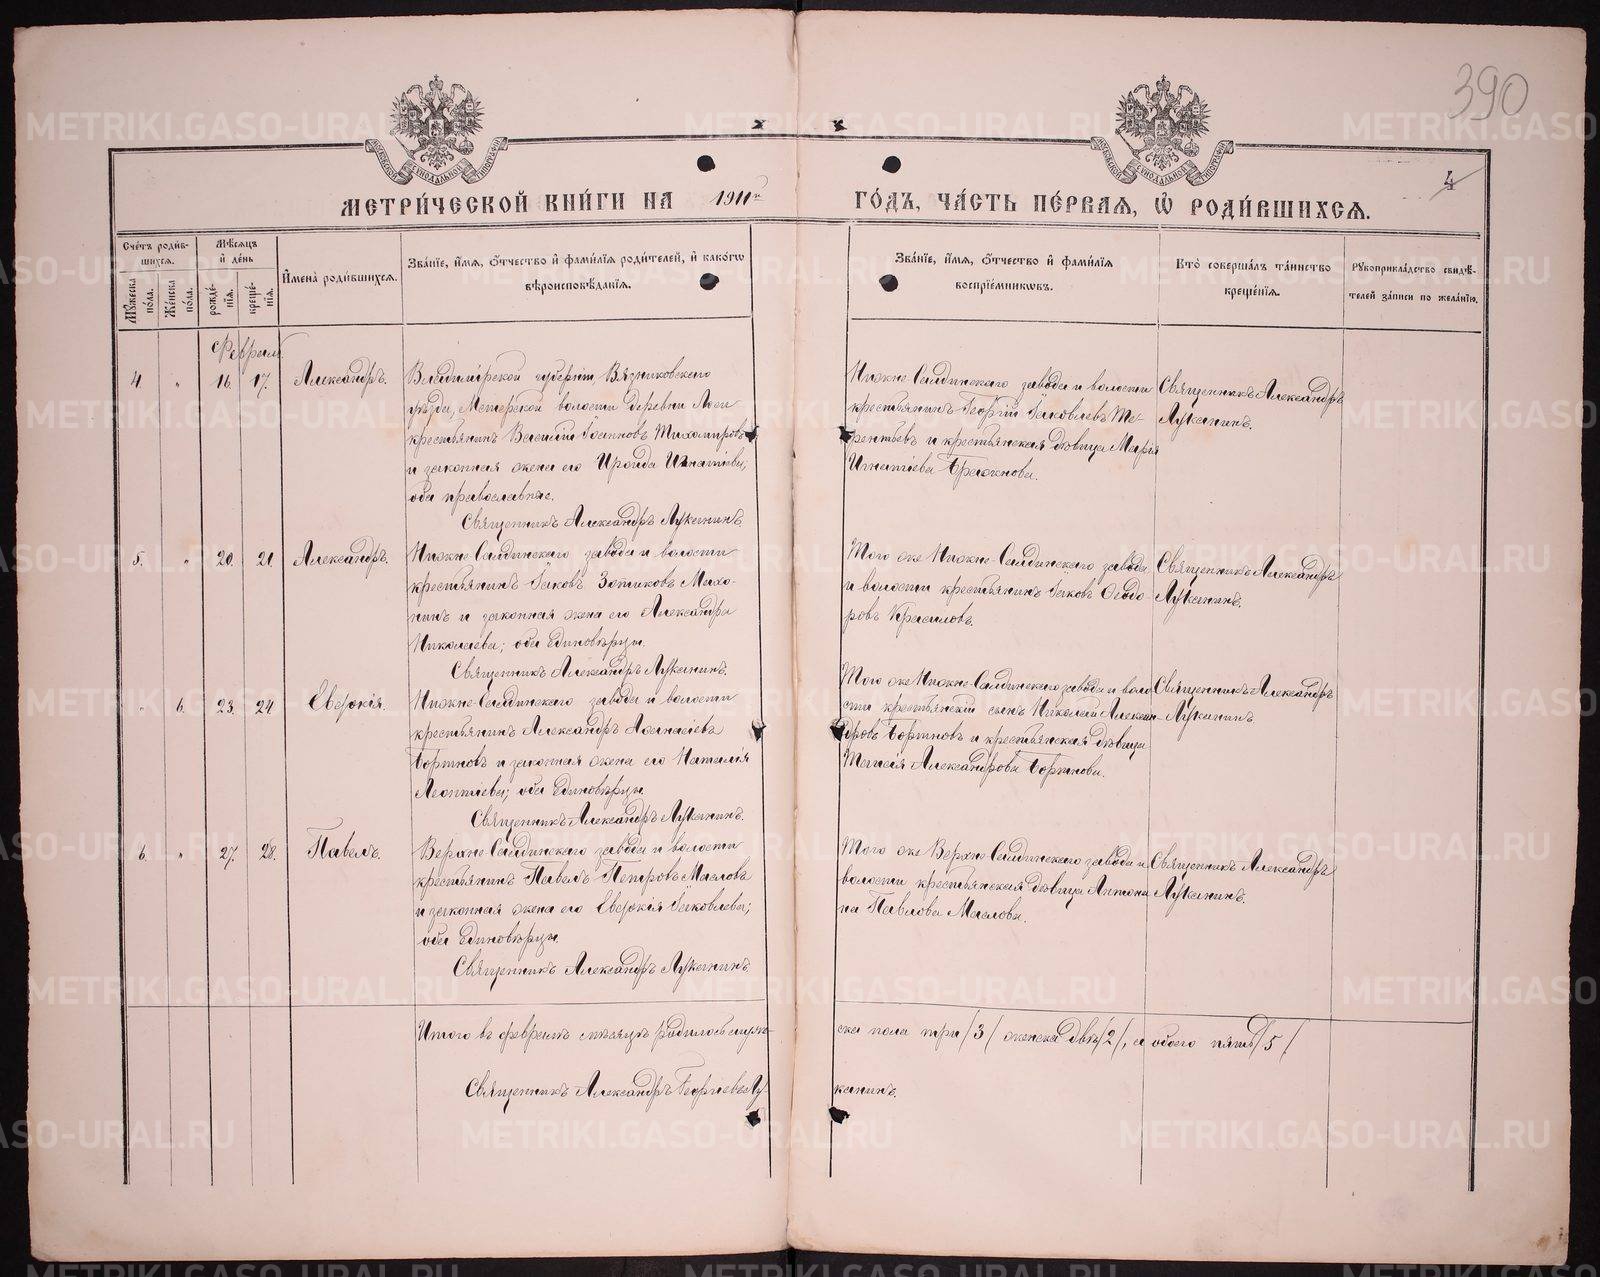 390
4
МЕТРИ́ЧЕСКОЙ КНИ́ГИ НА 1911й ГО́ДЪ, ЧА́СТЬ ПЕ́РВАЯ, Ѡ РОДИ́ВШИХСЯ.
Сче́тъ роди́в-
шихся.
Мѣ́сяцъ
и де́нь
Му́жеска
по́ла.
Же́нска
по́ла.
рожде́-
нія.
креще́-
нія.
Имена̀ роди́вшихся.
Зва́ніе, и́мя, о́тчество и фами́лія роди́телей, и како́гѡ
вѣроисповѣ́данія.
Зва́ніе, и́мя, о́тчество и фами́лія
воспріе́мниковъ.
Кто̀ соверша́лъ та́инство
креще́нія.
Рукоприкла́дство свидѣ́-
телей за́писи по жела́нію.
Февраль
4. " 16. 17. Александръ.
Владимірской губерніи, Вязниковскаго
уѣзда, Мстерской волости деревни
крестьянинъ Василій Іоанновъ Тихомировъ
и законная жена его Ираида Игнатіева,
оба православные.
Священникъ Александръ Луканинъ.
Нижне-Салдинскаго завода и волости
крестьянинъ Георгій Іаковлевъ Те-
рентьевъ и крестьянская дѣвица Марія
Игнатіева Бражнова.
Священникъ Александръ
Луканинъ.
5. " 20. 21. Александръ.
Нижне-Салдинскаго завода и волости
крестьянинъ Іаковъ Зотиковъ Махо-
нинъ и законная жена его Александра
Николаева; оба единовѣрцы.
Священникъ Александръ Луканинъ.
Того же Нижне-Салдинскаго завода
и волости крестьянинъ Іаковъ Ѳеодо-
ровъ Красиловъ.
Священникъ Александръ
Луканинъ.
" 6. 23. 24. Евдокія.
Нижне-Салдинскаго завода и волости
крестьянинъ Александръ Аѳанасіевъ
Бортновъ и законная жена его Наталія
Леонтіева; оба единовѣрцы.
Священникъ Александръ Луканинъ.
Того же Нижне-Салдинскаго завода и воло
сти крестьянскій сынъ Николай Алексан-
дровъ Бортновъ и крестьянская дѣвица
Таисія Александрова Бортнова.
Священникъ Александръ
Луканинъ
6. " 27. 28. Павелъ.
Верхне-Салдинскаго завода и волости
крестьянинъ Павелъ Петровъ Масловъ
и законная жена его Евдокія Іаковлева;
оба единовѣрцы.
Священникъ Александръ Луканинъ.
Того же Верхне-Салдинскаго завода и
волости крестьянская дѣвица Антони
на Павлова Маслова.
Священникъ Александръ
Луканинъ.
Итого въ февралѣ мѣсяцѣ родилось муже-
ска пола три /3/ женска двѣ /2/, а обоего пять /5/.
Священникъ Александръ Георгіевъ Лу
канинъ.
METRIKI.GASO-URAL.RU